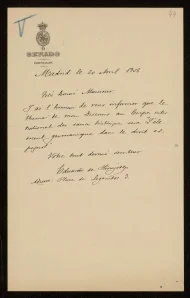 44
SENADO
Madrid le 20 Avril 1908
Très honoré Monsieur
J'ai l'honneur de vous informer que le
thème de mon Discours au Congrès inter-
national des sciences historiques sera l'élé-
ment germanique dans le droit es-
pagnol.
Votre tout dévoué serviteur
Eduardo de Hinojosa